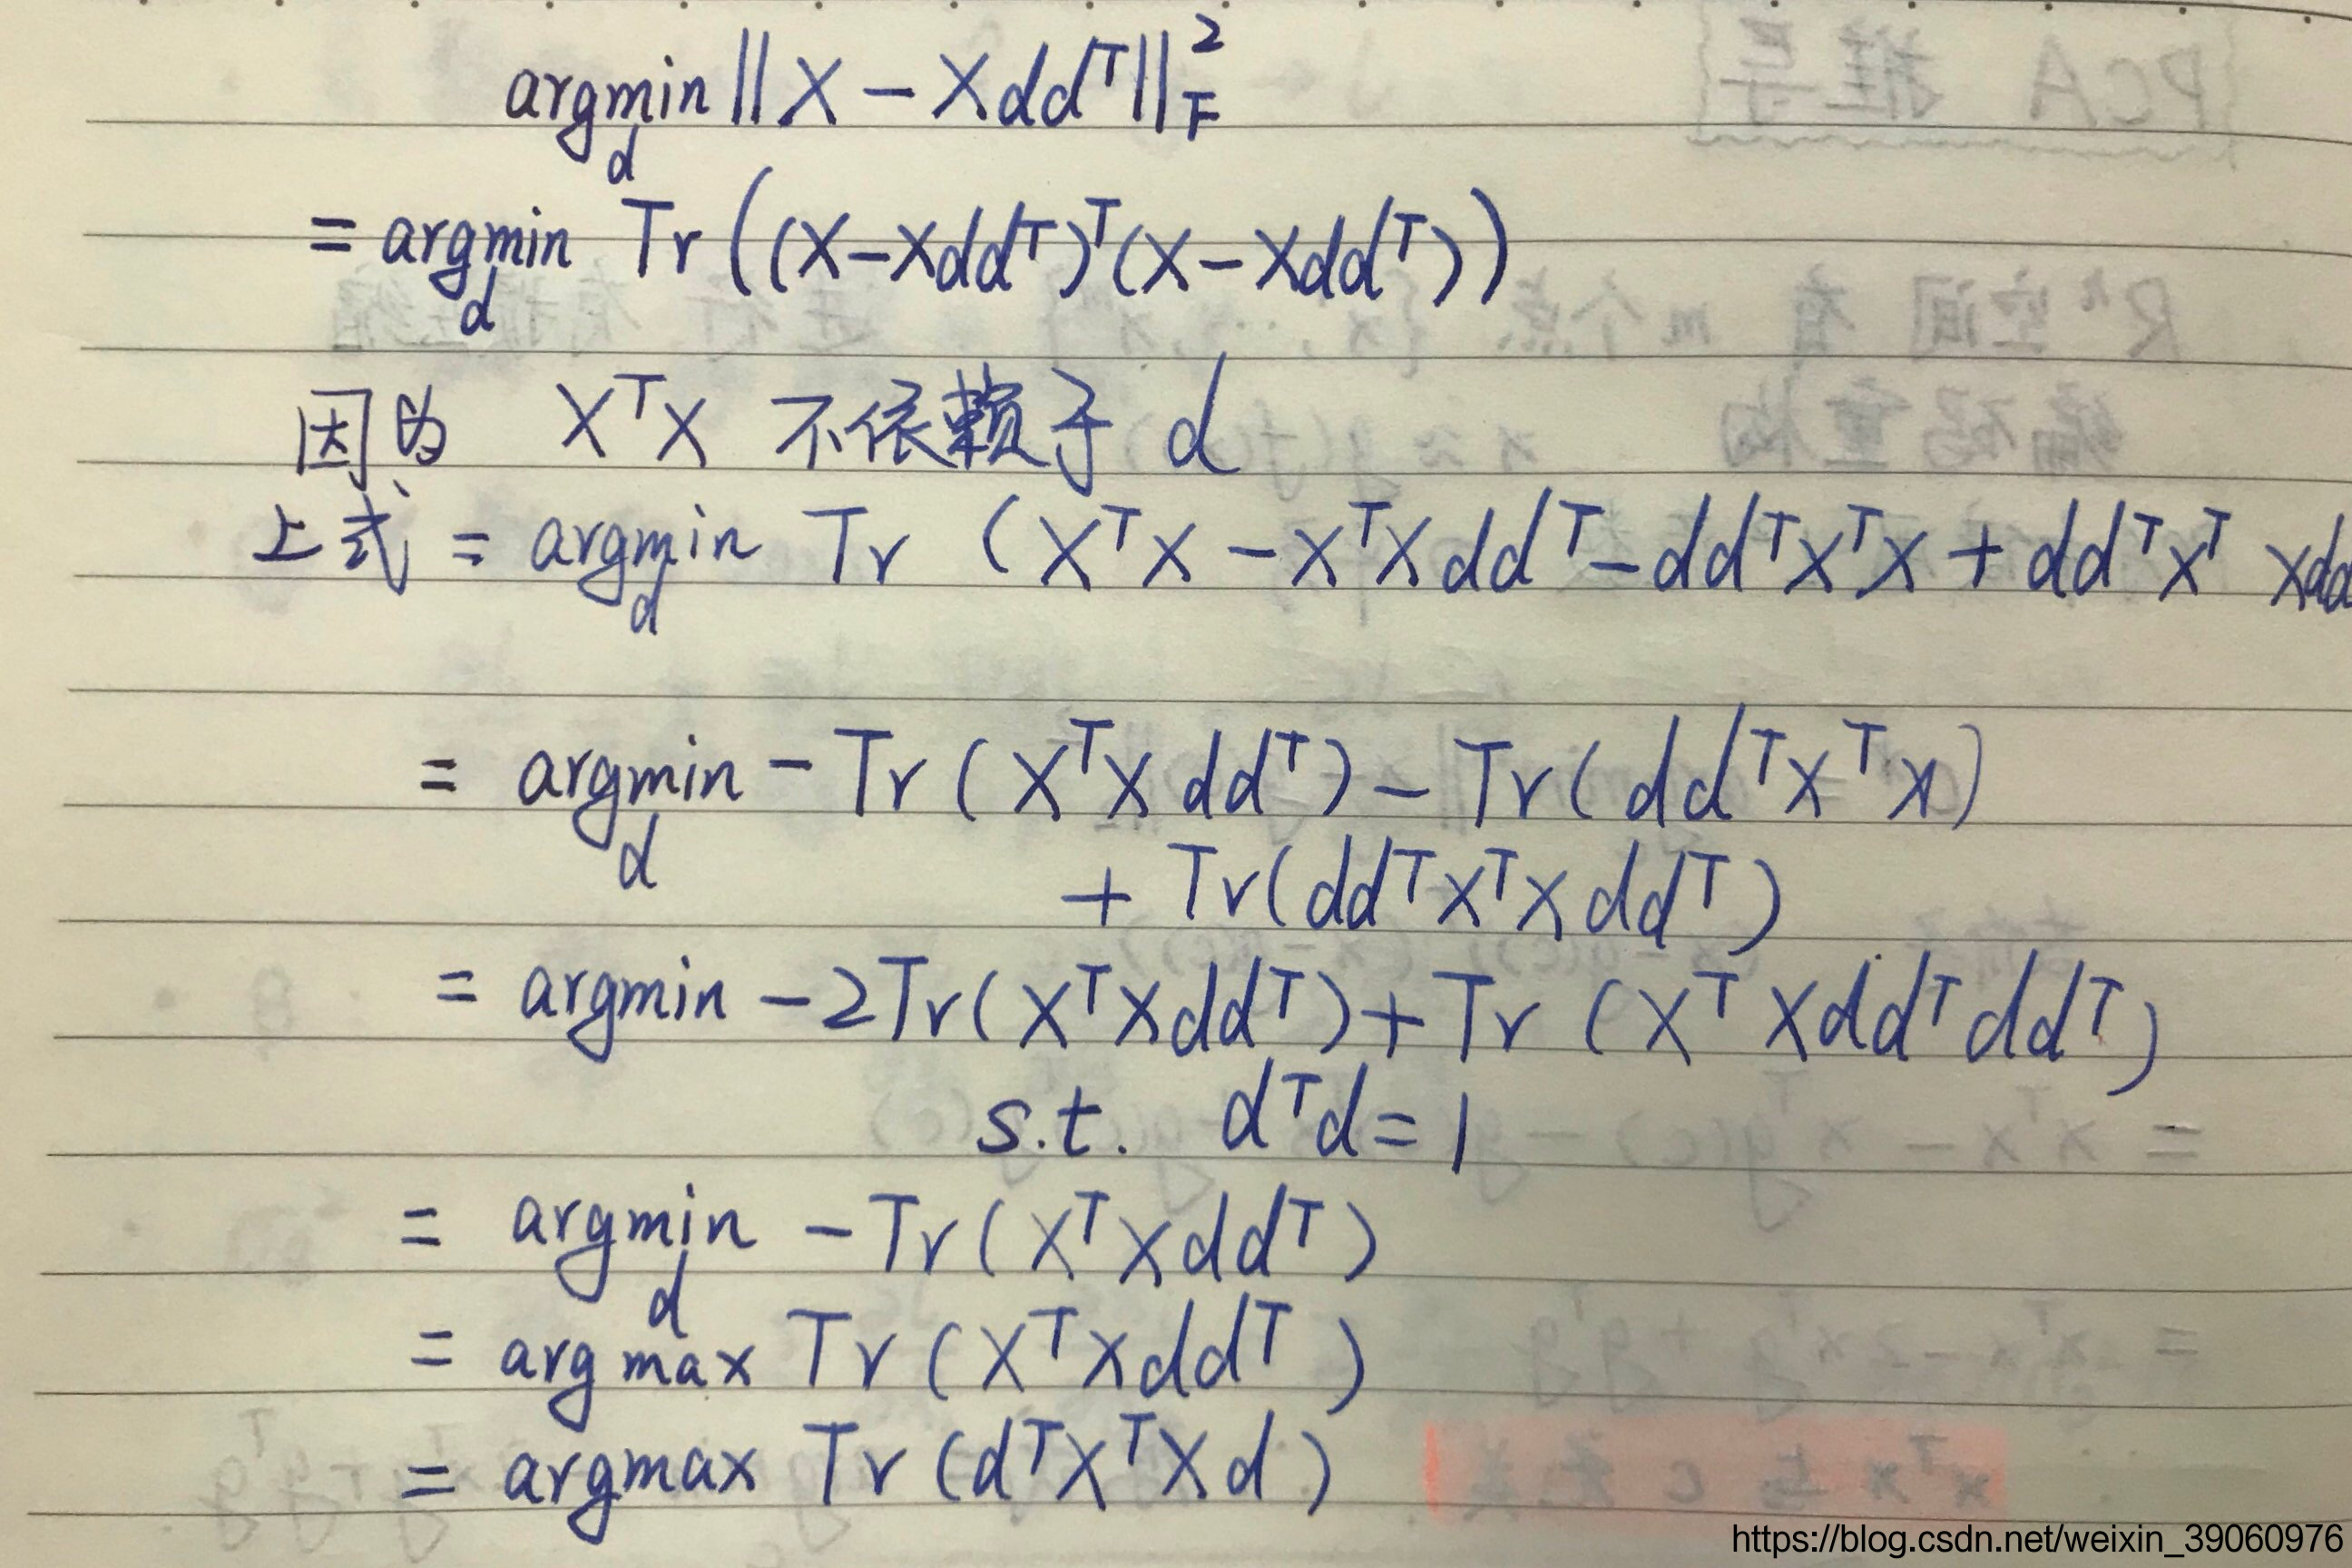 argmin_d ||X - Xdd^T||_F^2
= argmin_d Tr((X-Xdd^T)^T(X-Xdd^T))
因为 X^TX 不依赖于 d
上式 = argmin_d Tr (X^TX - X^TXdd^T - dd^TX^TX + dd^TX^T Xdd
= argmin_d - Tr(X^TXdd^T) - Tr(dd^TX^TX)
+ Tr(dd^TX^TXdd^T)
= argmin -2Tr(X^TXdd^T) + Tr(X^TXdd^Tdd^T)
s.t. d^Td=1
= argmin_d -Tr(X^TXdd^T)
= argmax Tr(X^TXdd^T)
= argmax Tr(d^TX^TXd)
https://blog.csdn.net/weixin_39060976